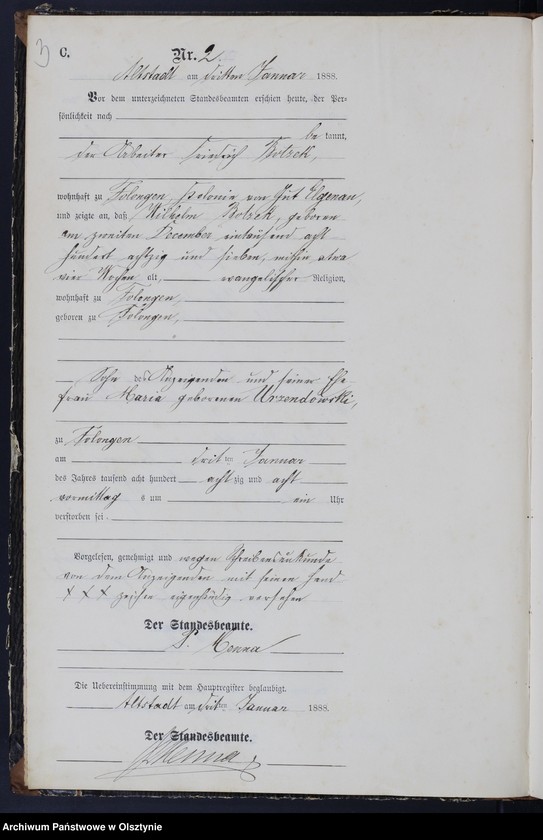 3
C.
Nr. 2.
Altstadt am dritten Januar 1888.
Vor dem unterzeichneten Standesbeamten erschien heute, der Per-
sönlichkeit nach
be kannt,
der Arbeiter Friedrich
wohnhaft zu Folongen, Kolonie von Gut Elgenau,
und zeigte an, daß Wilhelm geboren
am zweiten December eintausend acht
hundert achtzig und sieben, mithin etwa
vier Wochen alt, evangelischer Religion,
wohnhaft zu Folongen,
geboren zu Folongen,
Sohn des Anzeigenden und seiner Ehe-
frau Maria geborenen Urzendowski,
zu Folongen
am dritten Januar
des Jahres tausend acht hundert achtzig und acht
vormittags um ein Uhr
verstorben sei.
Vorgelesen, genehmigt und wegen Schreibensunkunde
von dem Anzeigenden mit seinen Hand
x x x zeichen eigenhändig versehen
Der Standesbeamte.
Menna
Die Uebereinstimmung mit dem Hauptregister beglaubigt.
Altstadt am dritten Januar 1888.
Der Standesbeamte.
Menna
Archiwum Państwowe w Olsztynie